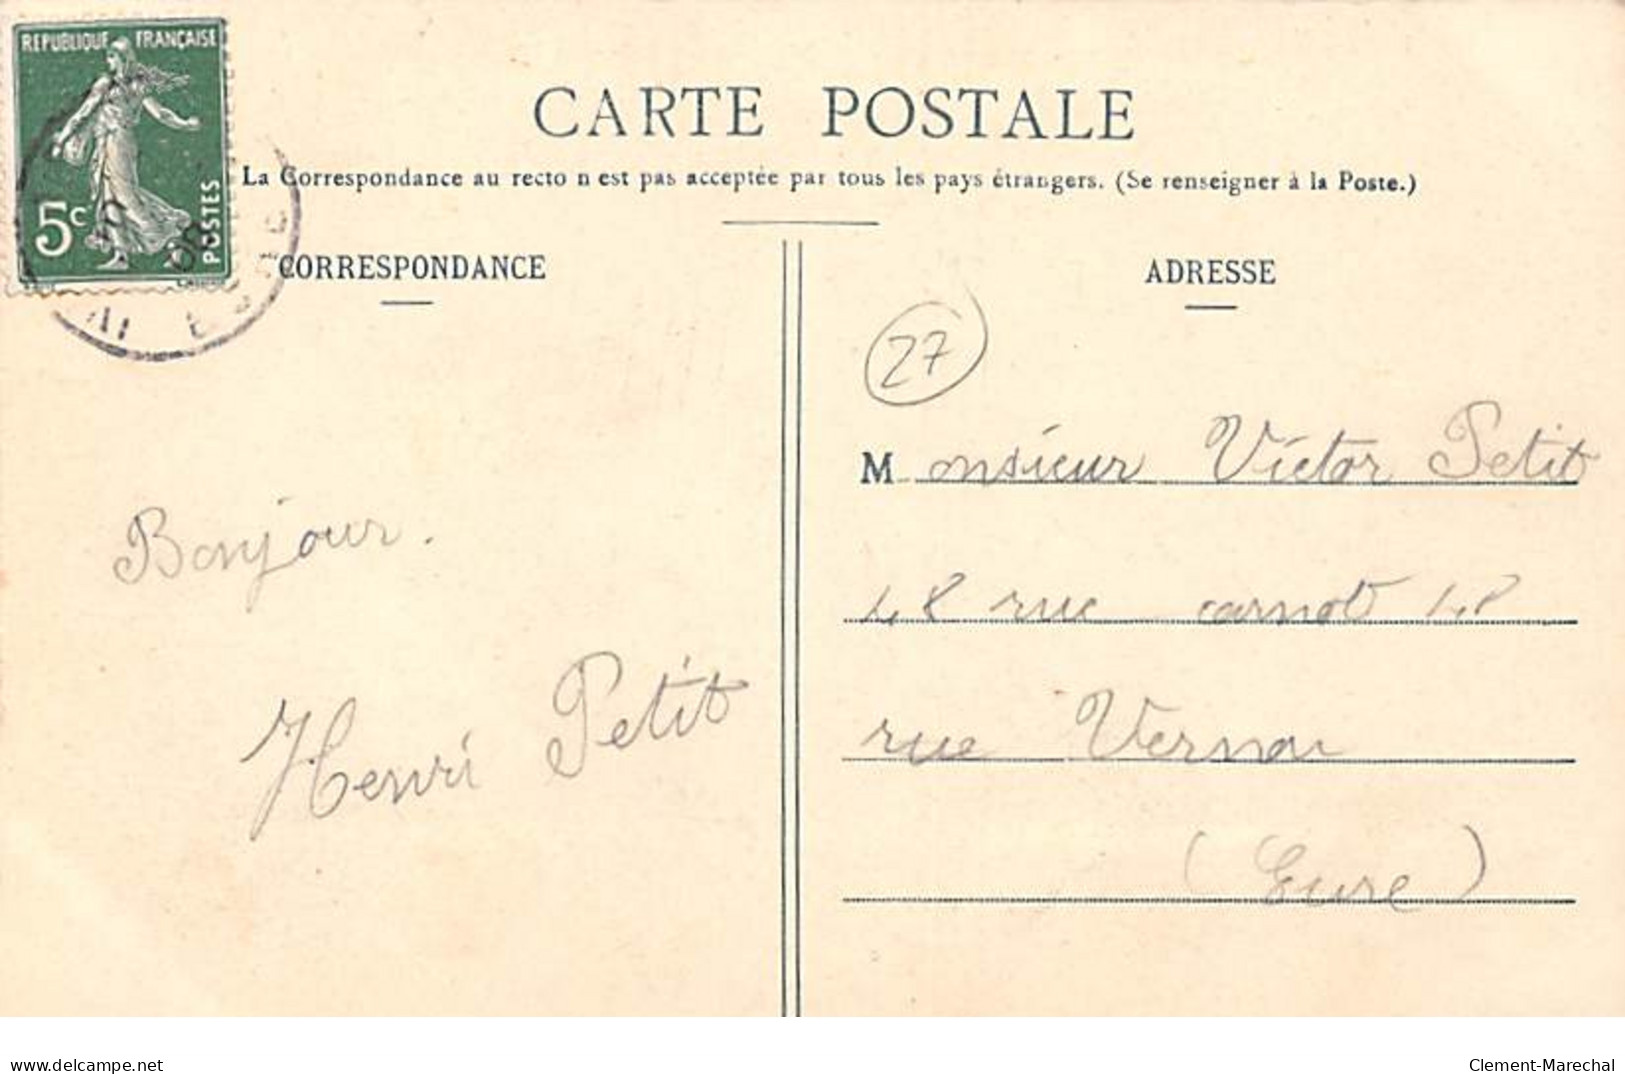 REPUBLIQUE FRANÇAISE
5c
POSTES
CARTE POSTALE
La Correspondance au recto n est pas acceptée par tous les pays étrangers. (Se renseigner à la Poste.)
CORRESPONDANCE
Bonjour.
Henri Petit
ADRESSE
27
Monsieur Victor Petit
48 rue carnot 48
rue Vernon
(Eure)
www.delcampe.net
Clement-Marechal